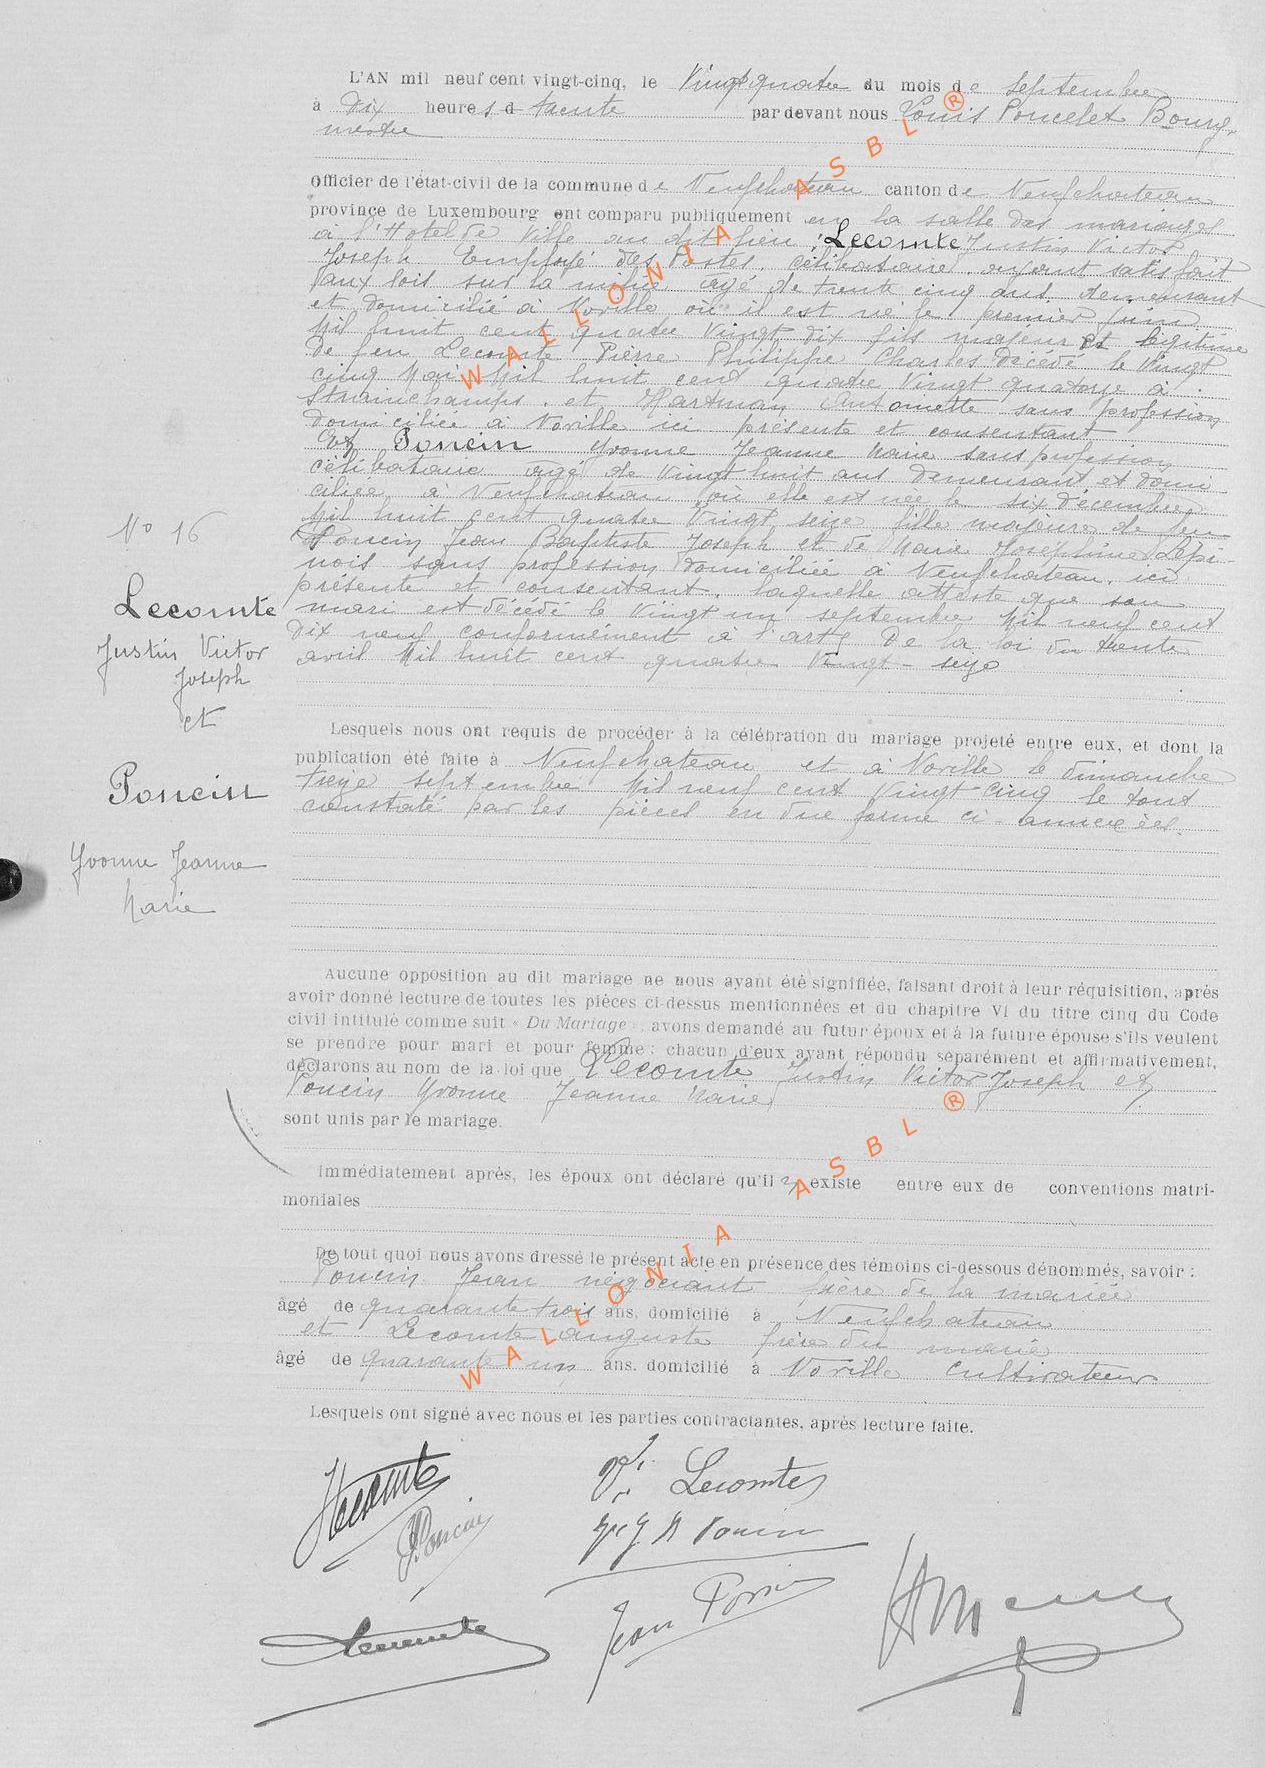 L'AN mil neuf cent vingt-cinq, le Vingt quatre du mois de Septembre
à Dix heures d trente par devant nous Louis Poncelet Bourg-
mestre
Officier de l'état-civil de la commune de Neufchateau canton de Neufchateau
province de Luxembourg ont comparu publiquement en la salle des mariages
à l'Hotel de Ville au dit lieu : Lecomte Justin Victor
Joseph Employé des Postes, célibataire, ayant satisfait
aux lois sur la milice agé de trente cinq ans demeurant
et domicilié à Noville où il est né le premier Juin
Mil huit cent quatre Vingt dix fils majeur et légitime
de feu Lecomte Pierre Philippe Charles décédé le Vingt
cinq Mai Mil huit cent quatre Vingt quatorze à
Strainchamps. et Hartman Antoinette sans profession
domiciliée à Noville ici présente et consentant
Et Poncin Yvonne Jeanne Marie sans profession
célibataire agé de Vingt huit ans demeurant et domi
ciliée à Neufchateau où elle est née le six décembre
Mil huit cent quatre Vingt seize fille majeure de feu
Poncin Jean Baptiste Joseph et de Marie Joséphine Lépi-
nois sans profession domiciliée à Neufchateau. ici
présente et consentant. laquelle atteste que son
mari est décédé le Vingt un septembre Mil neuf cent
dix neuf conformément à l'art De la loi du trente
avril Mil huit cent quatre Vingt-seize
No 16
Lecomte
Justin Victor
Joseph
et
Poncin
Yvonne Jeanne
Marie
Lesquels nous ont requis de procéder à la célébration du mariage projeté entre eux, et dont la
publication été faite à Neufchateau et à Noville le dimanche
treize septembre Mil neuf cent Vingt-cinq le tout
constaté par les pièces en due forme ci-annexées.
Aucune opposition au dit mariage ne nous ayant été signifiée, faisant droit à leur réquisition, après
avoir donné lecture de toutes les pièces ci-dessus mentionnées et du chapitre VI du titre cinq du Code
civil intitulé comme suit « Du Mariage », avons demandé au futur époux et à la future épouse s'ils veulent
se prendre pour mari et pour femme : chacun d'eux ayant répondu séparément et affirmativement,
déclarons au nom de la loi que Lecomte Justin Victor Joseph et
Poncin Yvonne Jeanne Marie
sont unis par le mariage.
Immédiatement après, les époux ont déclaré qu'il n existe entre eux de conventions matri-
moniales
De tout quoi nous avons dressé le présent acte en présence des témoins ci-dessous dénommés, savoir :
Poncin Jean négociant frère de la mariée
âgé de quarante trois ans, domicilié à Neufchateau
et Lecomte auguste frère du marié
âgé de quarante un ans. domicilié à Noville cultivateur
Lesquels ont signé avec nous et les parties contractantes, après lecture faite.
Lecomte
Lecomte
Poncin
Poncin
Lecomte
Jean Poncin
WALLONIA ASBL ®
WALLONIA ASBL ®